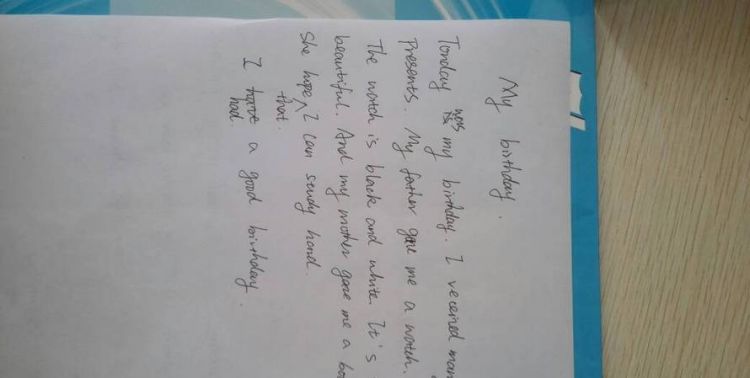 My birthday.
Tonday was my birthday. I received
Presents. My father gave me a watch.
The watch is black and white. It's
beautiful. And my mother gave me a
She hope that I can study hard.
I had a good birthday.